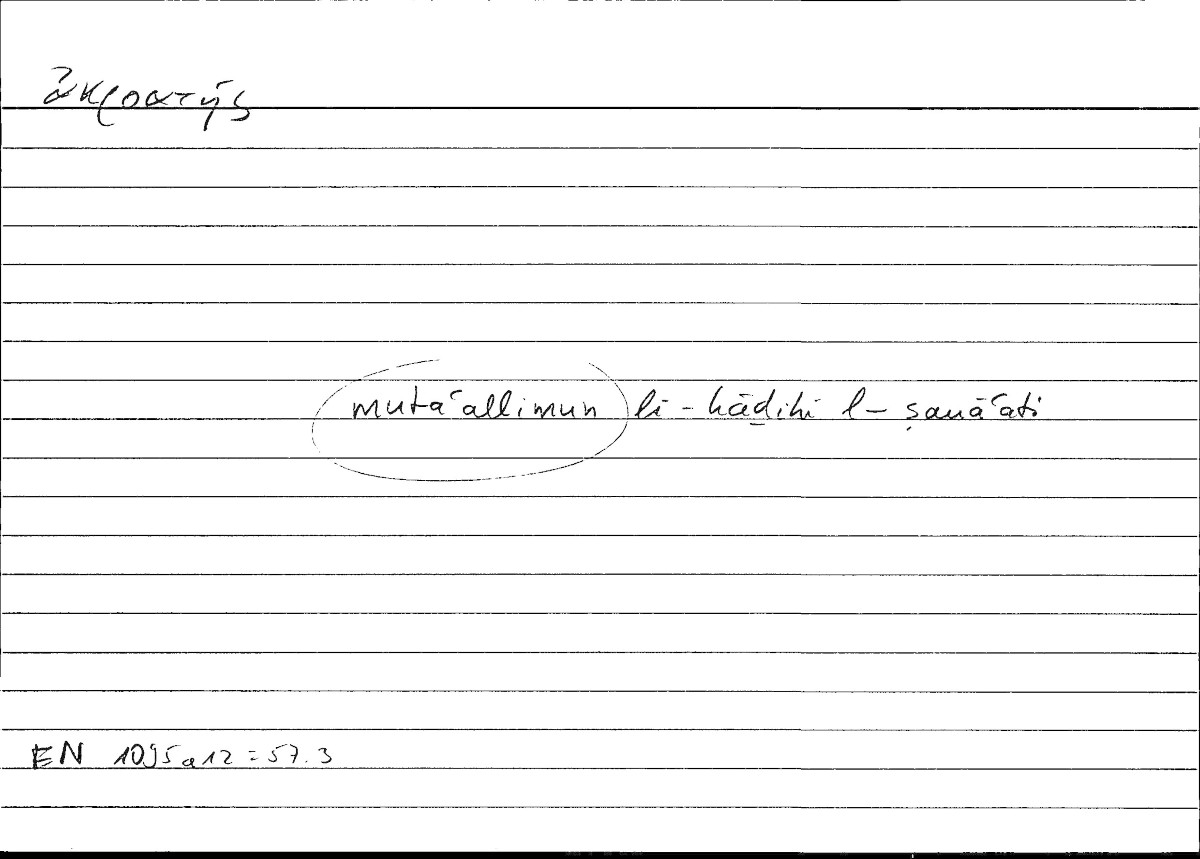 ἀκροατής
mutaʿallimun li-hāḏihi l-ṣanāʿati
EN 1095a12 = 57.3